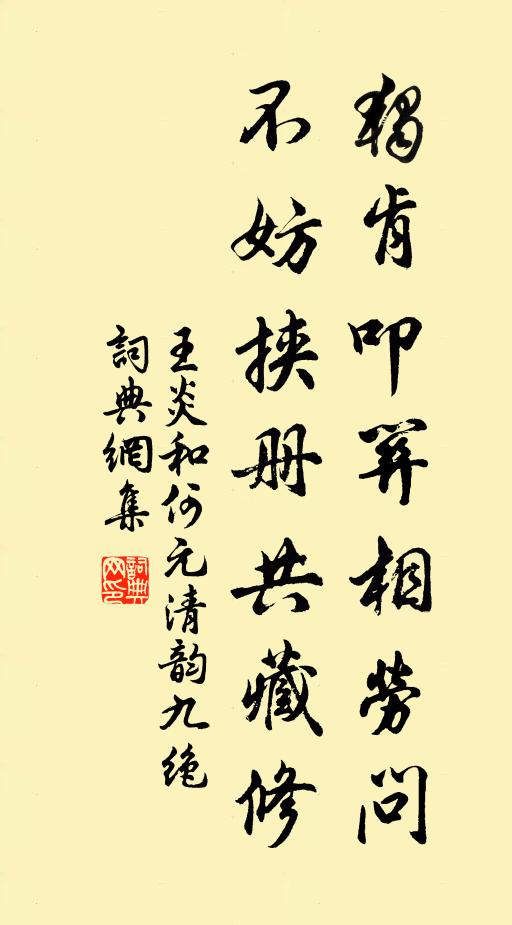 獨肯叩關相勞問
不妨挾册共藏修
王炎和何元清韵九绝
詞典網集
詞典網印